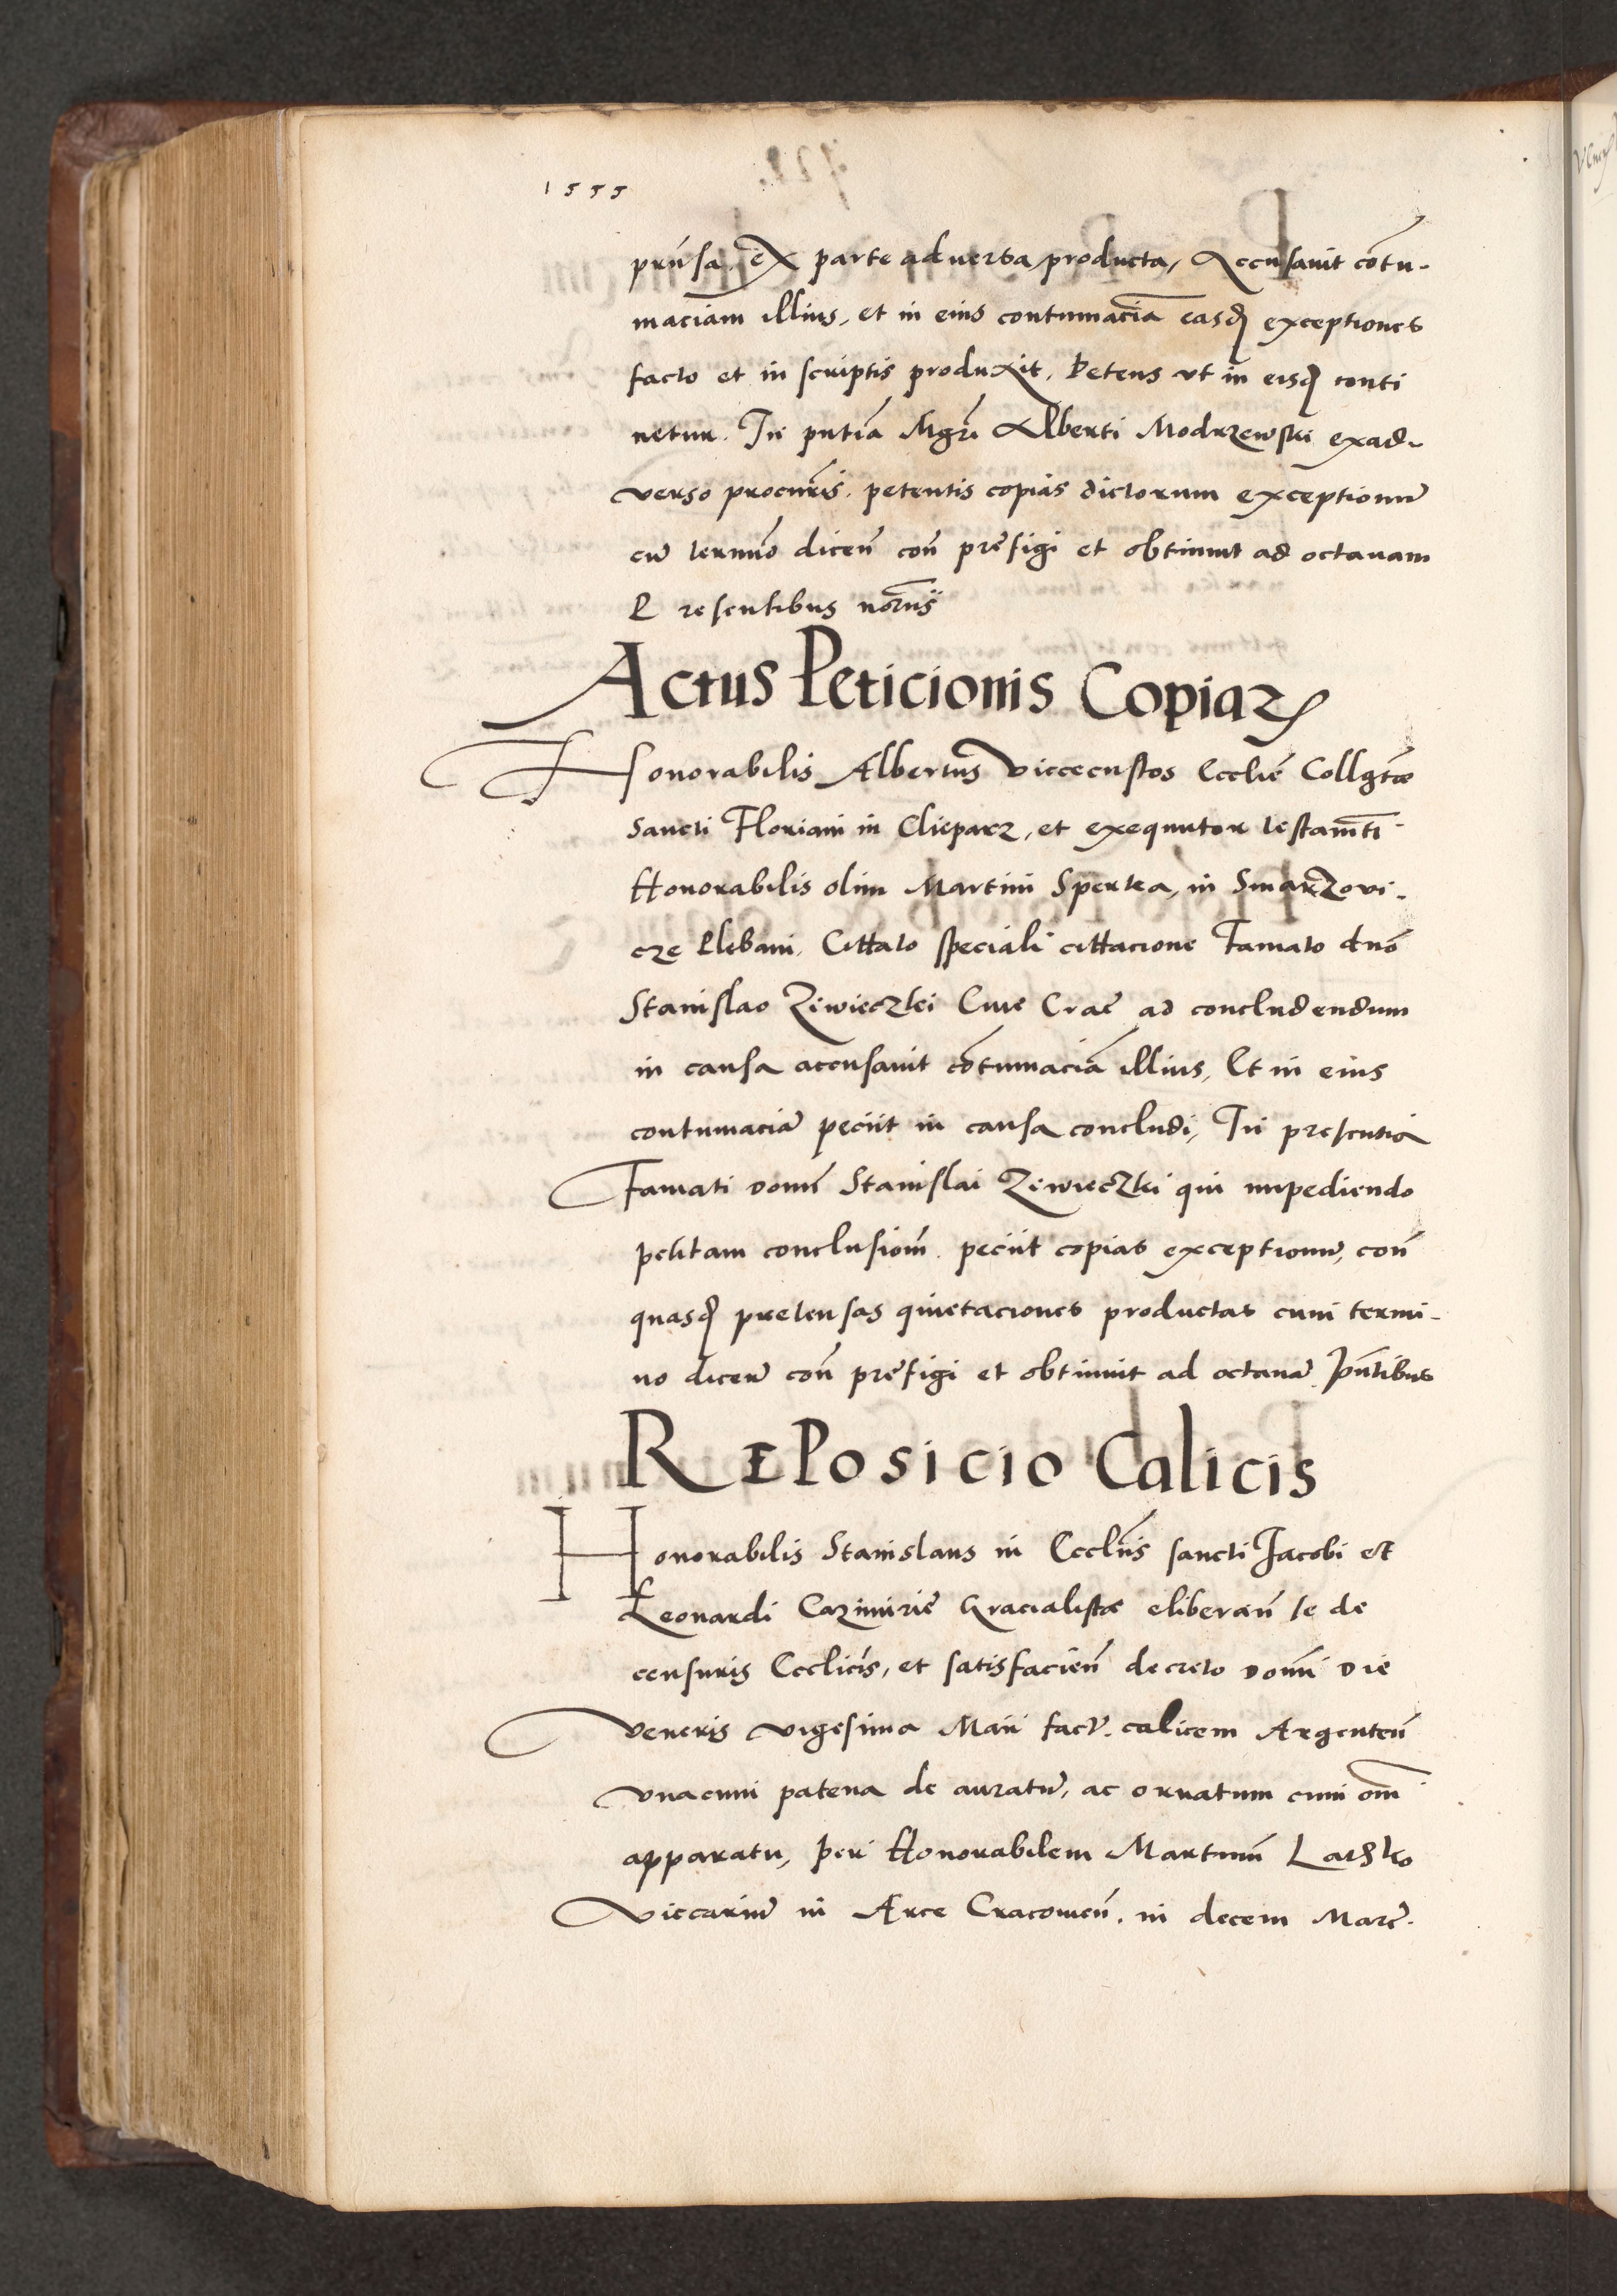 1555
prńsa. ex parte aduersa producta, Accusauit cōtu-
maciam illius, et in eius contumaciā easdē exceptiones
facto et in scriptis produxit. Petens vt in eisdē conti
netur. In pn̄tia Mgr̄i Alberti Modrzewski exad-
verso procur̄is. petentis copias dictorum exceptionū
cū termīo dicen̄ con̄ prefigi et obtinuit ad octauam
Presentibus nōrus
Actus Peticionis Copiarꝝ
Honorabilis Albertus Viccecustos Eccliē Collgtæ
Sancti Floriani in Clieparz, et exequutor testam̄ti
Honorabilis olim Martini Sperka, in Smarzovi-
cze Plebani. Cittato speciali cittacione Famato dn̄o
Stanislao Ziwieczki Ciue Crac̄ ad concludendum
in causa accusauit cōtumaciā illius, Et in eius
contumaciā peciit in causa concludi, In presentia
Famati domi Stanislai Ziwieczki qui impediendo
petitam conclusiōm. peciit copias exceptionū, con̄
quasdē pretensas quietaciones productas cum termi-
no dicen̄ con̄ prefigi et obtinuit ad octauā Pn̄tibus
Reposicio Calicis
Honorabilis Stanislaus in Eccliis sancti Jacobi et
Leonardi Cazimiriē Gracialistæ eliberan̄ se de
censuris Ecclicis, et satisfacien̄ decreto Domi Die
Veneris vigesima Maii fact̄. calicem Argenteū
vnacum patena de auratū, ac ornatum cum om̄i
apparatu, per Honorabilem Martinū
Viccariū in Arce Cracouien̄. in decem Marc̄.